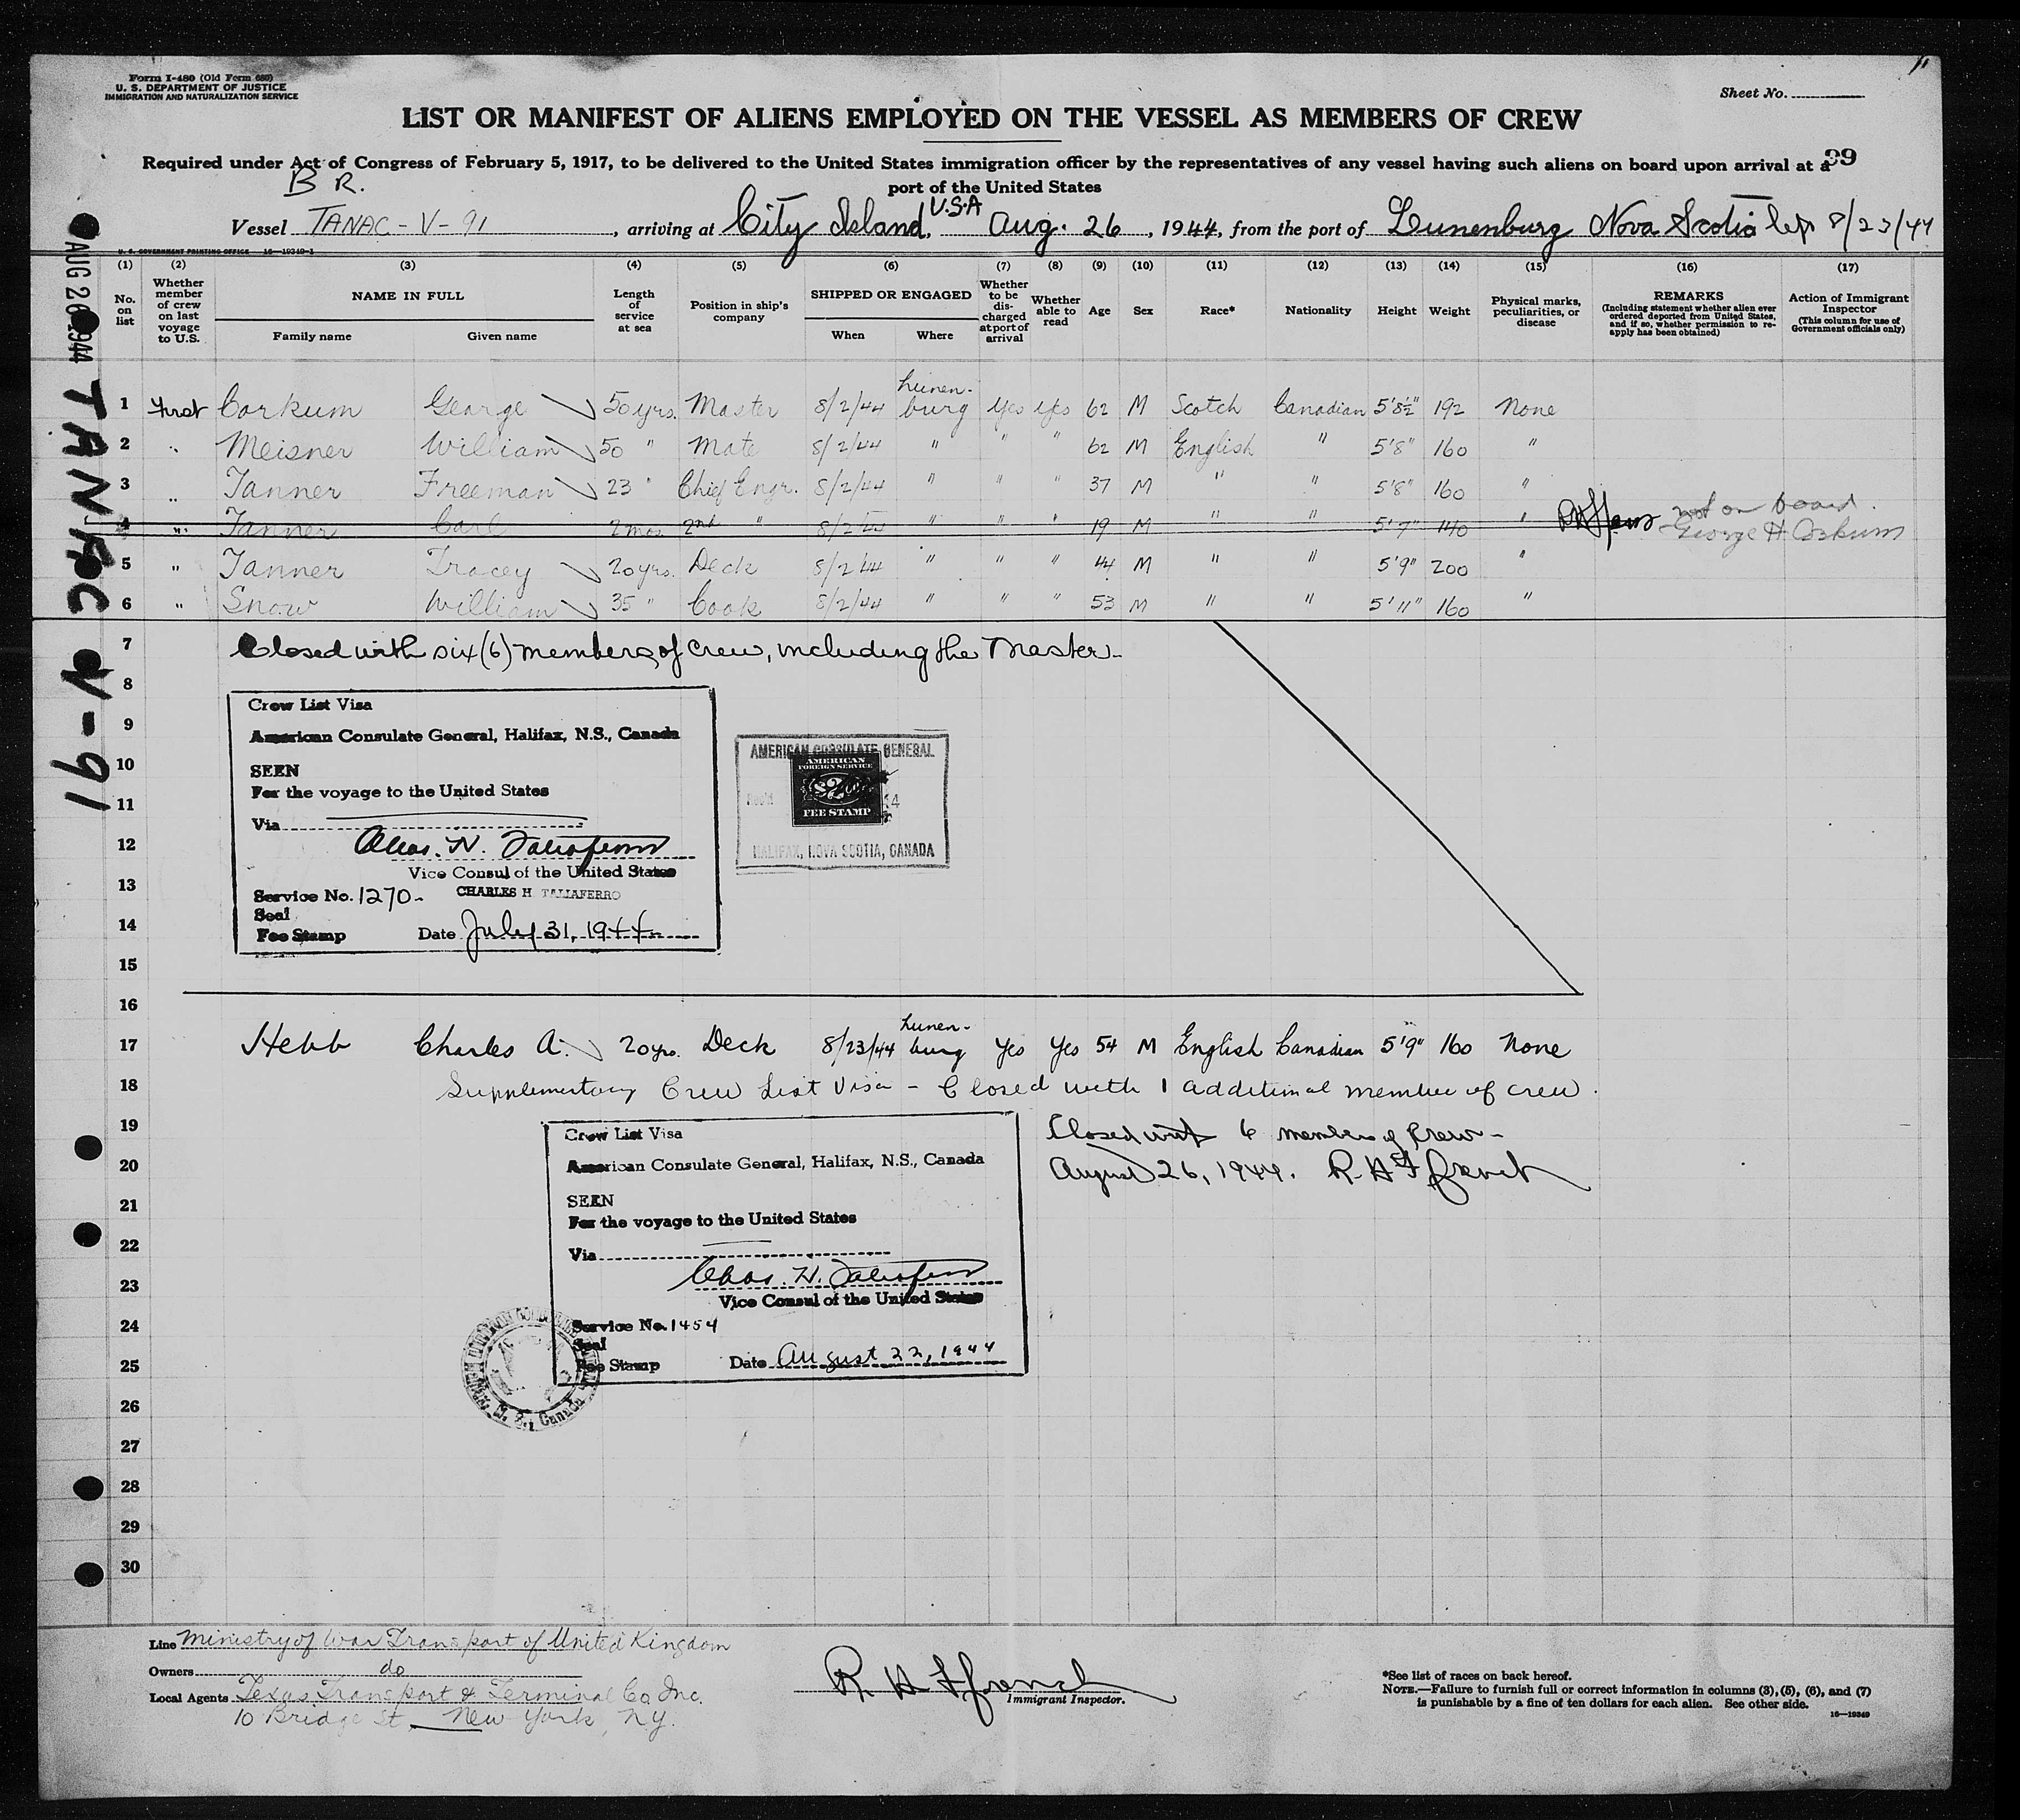 Form I-480 (Old Form 680)
U. S. DEPARTMENT OF JUSTICE
IMMIGRATION AND NATURALIZATION SERVICE
Sheet No.
LIST OR MANIFEST OF ALIENS EMPLOYED ON THE VESSEL AS MEMBERS OF CREW
Required under Act of Congress of February 5, 1917, to be delivered to the United States immigration officer by the representatives of any vessel having such aliens on board upon arrival at a
port of the United States
99
B R.
Vessel TANAC-V-91, arriving at City Island, U.S.A Aug. 26, 1944, from the port of Lunenburg Nova Scotia left 8/23/44
U. S. GOVERNMENT PRINTING OFFICE 16-19349-1
(1) (2) (3) (4) (5) (6) (7) (8) (9) (10) (11) (12) (13) (14) (15) (16) (17)
No. on list
Whether member of crew on last voyage to U.S.
NAME IN FULL
Family name Given name
Length of service at sea
Position in ship's company
SHIPPED OR ENGAGED
When Where
Whether to be discharged at port of arrival
Whether able to read
Age
Sex
Race*
Nationality
Height
Weight
Physical marks, peculiarities, or disease
REMARKS
(Including statement whether alien ever ordered deported from United States, and if so, whether permission to re-apply has been obtained)
Action of Immigrant Inspector
(This column for use of Government officials only)
1 First Corkum George 50 yrs. Master 8/2/44 Lunen-burg Yes Yes 62 M Scotch Canadian 5'8½" 192 None
2 " Meisner William 50 " Mate 8/2/44 " " " 62 M English " 5'8" 160 "
3 " Tanner Freeman 23 " Chief Engr. 8/2/44 " " " 37 M " " 5'8" 160 "
4 " Tanner Carl 2 mos. 2nd " 8/2/44 " " " 19 M " " 5'7" 140 " not on board.
George H Corkum
5 " Tanner Tracey 20 yrs. Deck 8/2/44 " " " 44 M " " 5'9" 200 "
6 " Snow William 35 " Cook 8/2/44 " " " 53 M " " 5'11" 160 "
7 Closed with six (6) members of crew, including the Master-
8
9
10
11
12
13
14
15
16
Crew List Visa
American Consulate General, Halifax, N.S., Canada
SEEN
For the voyage to the United States
Via
Chas. H. Taliaferro
Vice Consul of the United States
Service No. 1270- CHARLES H TALIAFERRO
Seal
Fee Stamp Date July 31, 1944
AMERICAN CONSULATE GENERAL
AMERICAN
FOREIGN SERVICE
$2
FEE STAMP
HALIFAX, NOVA SCOTIA, CANADA
17 Hebb Charles A. 20 yrs. Deck 8/23/44 Lunen-burg Yes Yes 54 M English Canadian 5'9" 160 None
18 Supplementary Crew List Visa - Closed with 1 additional member of crew.
19 Closed with 6 members of crew-
20 August 26, 1944. R. H Ffrench
21
22
23
24
25
26
27
28
29
30
Crew List Visa
American Consulate General, Halifax, N.S., Canada
SEEN
For the voyage to the United States
Via
Chas. H. Taliaferro
Vice Consul of the United States
Service No. 1454
Seal
Fee Stamp Date August 22, 1944
AUG 26 1944
TANAC V-91
Line Ministry of War Transport of United Kingdom
Owners do
Local Agents Texas Transport & Terminal Co Inc.
10 Bridge St, New York, N.Y.
R H Ffrench
Immigrant Inspector.
*See list of races on back hereof.
NOTE.—Failure to furnish full or correct information in columns (3), (5), (6), and (7)
is punishable by a fine of ten dollars for each alien. See other side.
16—19349